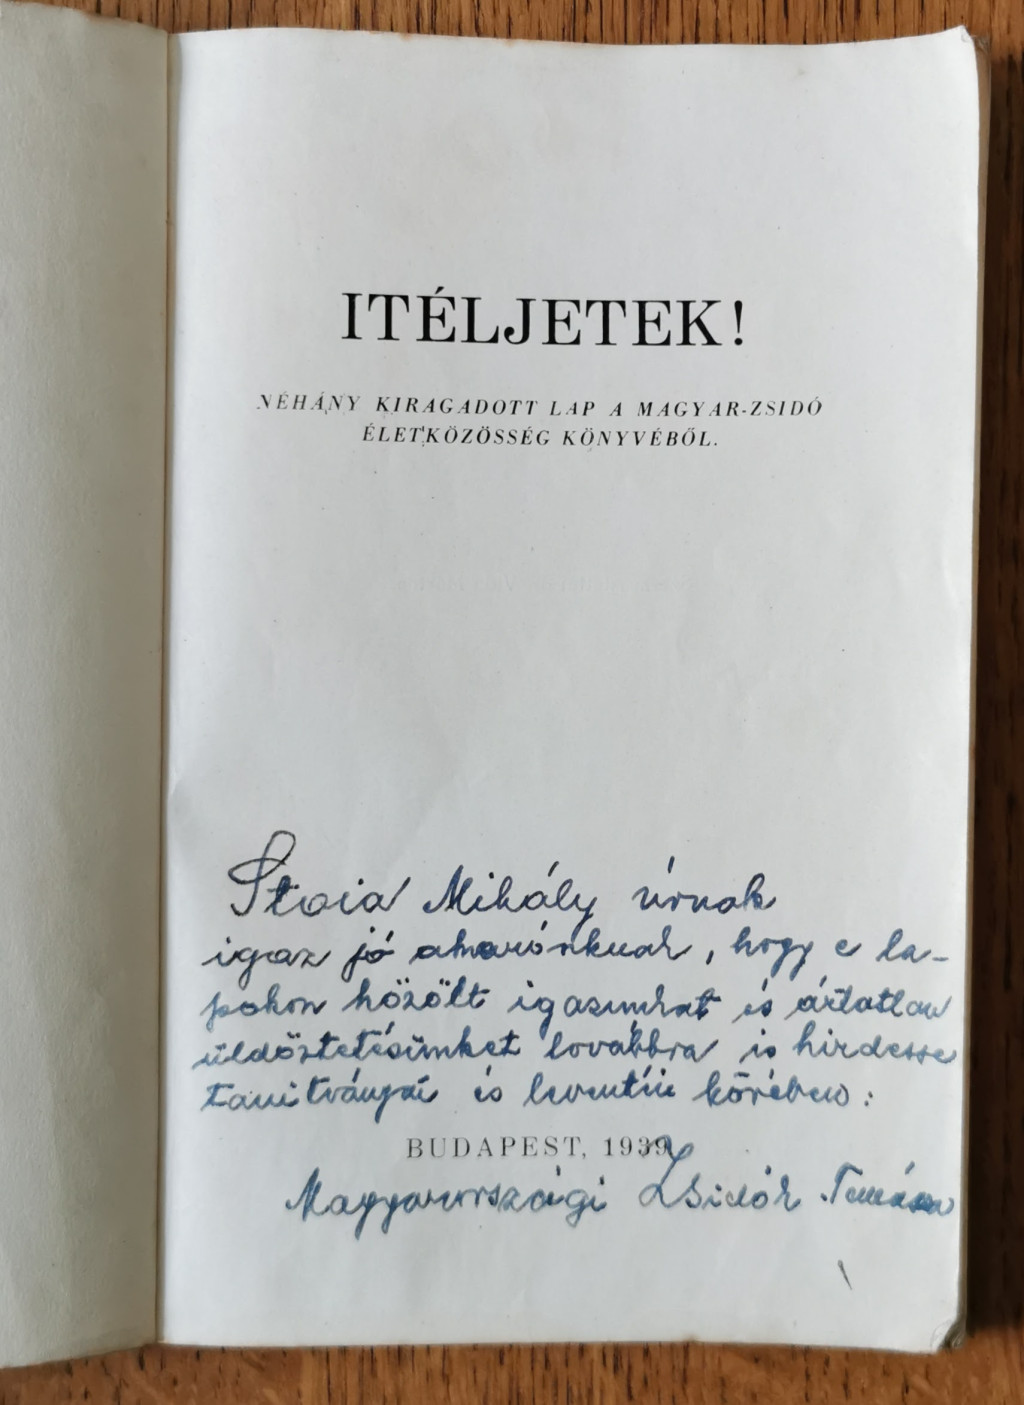 ITÉLJETEK!
NÉHÁNY KIRAGADOTT LAP A MAGYAR-ZSIDÓ
ÉLETKÖZÖSSÉG KÖNYVÉBŐL.
Stoia Mihály úrnak
igaz jó akarónknak, hogy e la-
pokon közölt igazunkat és ártatlan
üldöztetésünket továbbra is hirdesse
tanitványai és leventéi körében:
BUDAPEST, 1939
Magyarországi Zsidók